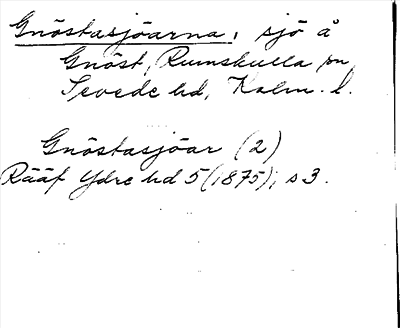 Gnöstasjöarna, sjö å
Gnöst, Rumskulla sn,
Sevede hd, Kalm. l.
Gnöstasjöar (2)
Rääf Ydre hd 5 (1875), s 3.